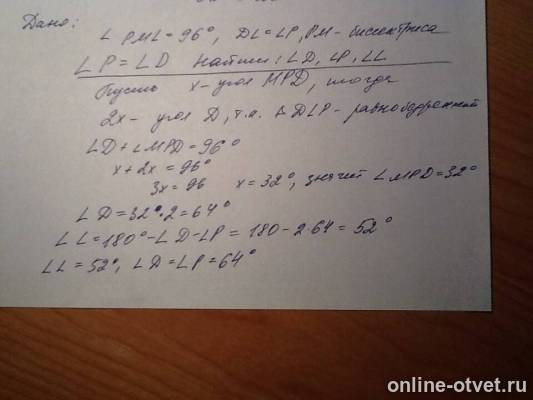 Дано:
∠ PML = 96°, DL = LP, PM - биссектриса
∠P = ∠D Найти: ∠D, ∠P, ∠L
Пусть x - угол MPD, тогда
2x - угол D, т.к. Δ DLP - равнобедренный
∠D + ∠MPD = 96°
x + 2x = 96°
3x = 96 x = 32°, значит ∠MPD = 32°
∠D = 32°·2 = 64°
∠L = 180° - ∠D - ∠P = 180 - 2·64 = 52°
∠L = 52°, ∠D = ∠P = 64°
online-otvet.ru